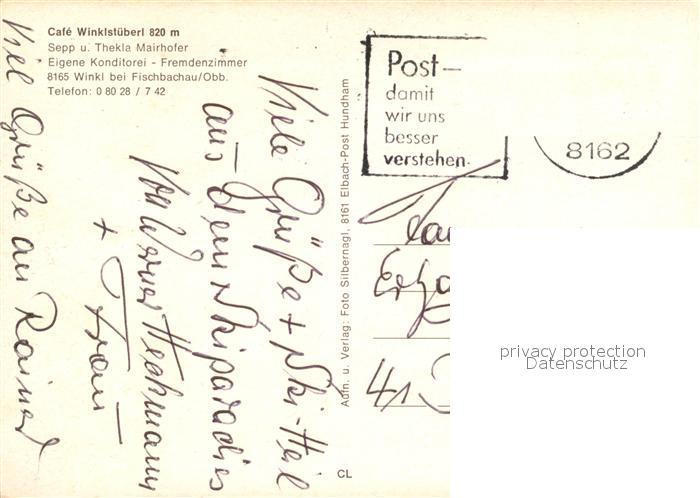 Café Winklstüberl 820 m
Sepp u. Thekla Mairhofer
Eigene Konditorei - Fremdenzimmer
8165 Winkl bei Fischbachau/Obb.
Telefon: 0 80 28 / 7 42
Viele Grüße + Ski-Heil
aus dem Skiparadies
von Werner Heckmann
+ Frau
Viel Grüße an Rainer
Aufn. u. Verlag: Foto Silbernagl, 8161 Elbach-Post Hundham
CL
Post-
damit
wir uns
besser
verstehen.
8162
41
privacy protection
Datenschutz